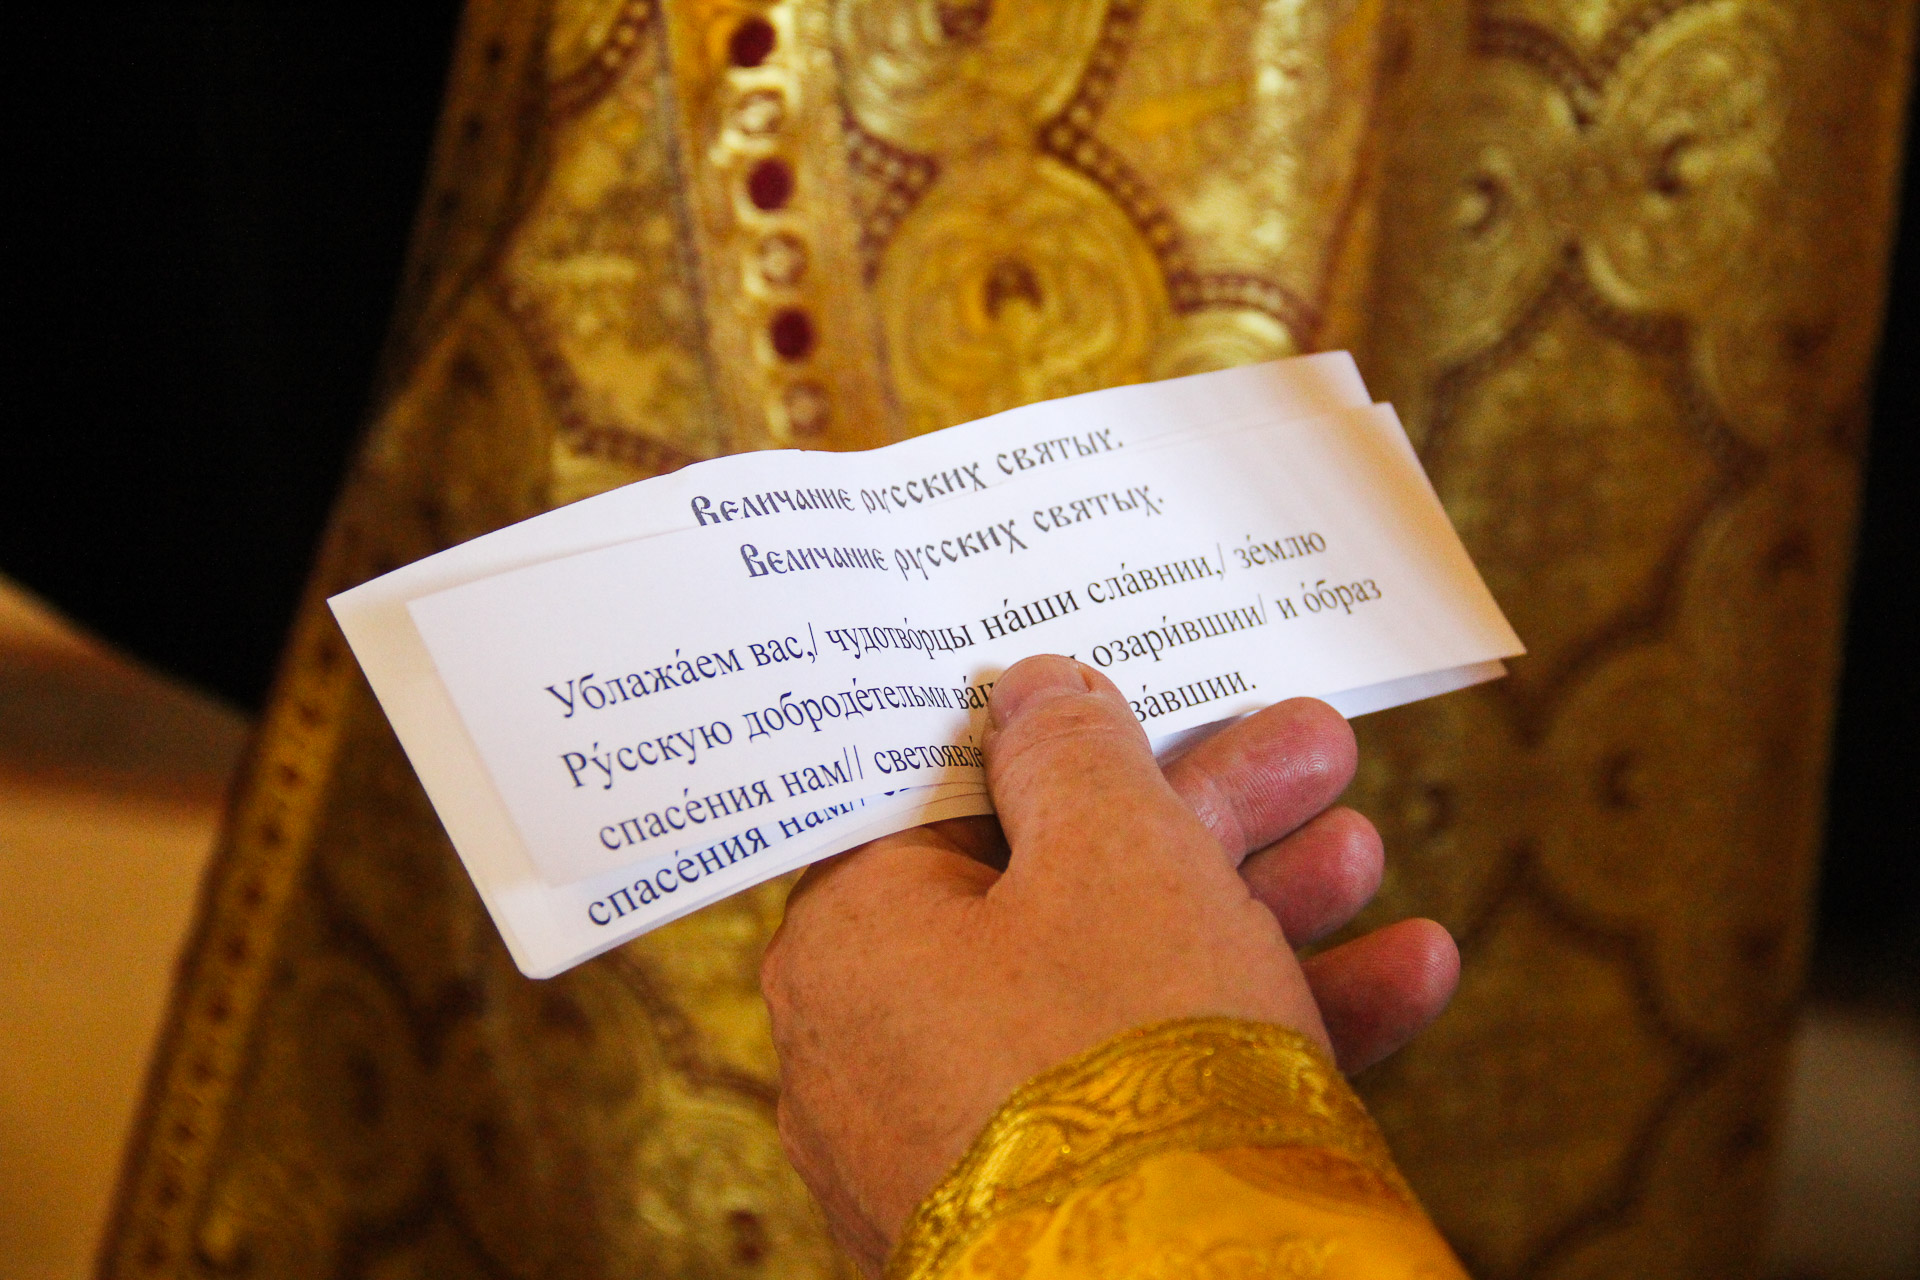 Величание русских святых.
Величание русских святых.
Ублажа́ем вас,/ чудотво́рцы на́ши сла́внии,/ зе́млю
Ру́сскую доброде́тельми озари́вшии/ и о́браз
спасе́ния нам//
спасе́ния нам//